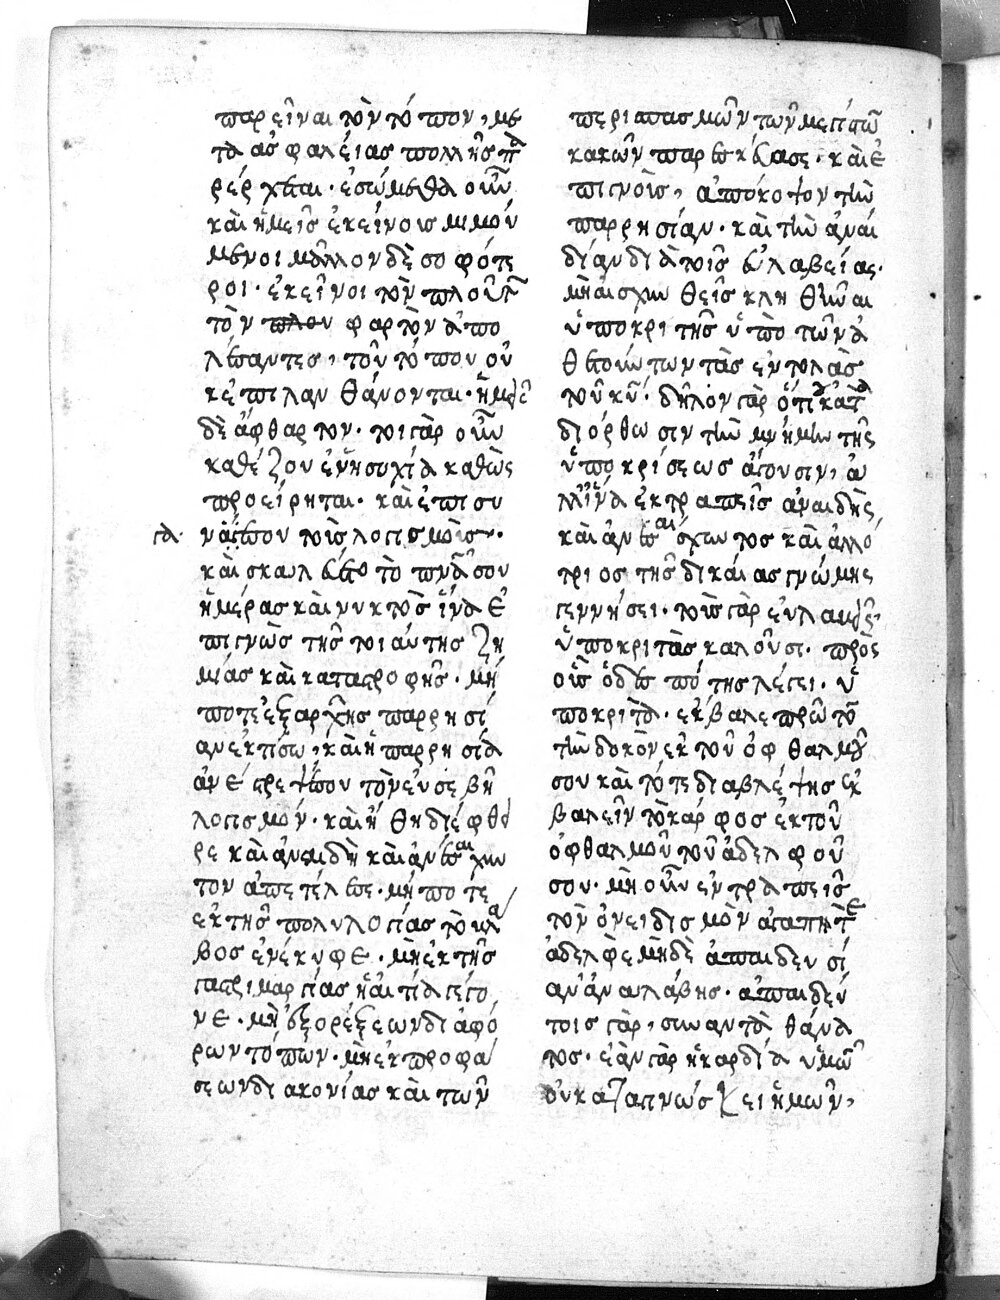 παρεῖναι τὸν τόπον, με
τὰ ἀσφαλείας πολλῆς πε
ρέρχεται· ἐσώμεθα οὖν
καὶ ἡμεῖς ἐκείνοις μιμού
μενοι μᾶλλον δὲ σοφότε
ροι· ἐκεῖνοι τὸν πλοῦτον
τὸν φθαρτὸν ἀπο
λέσαντες, τὸν τόπον οὐ
κ ἐπιλανθάνονται· ἡμεῖς
δὲ ἄφθαρτον· τοιγὰρ οὖν
καθέζου ἐν ἡσυχίᾳ καθὼς
προείρηται· καὶ ἐπισυ
νάγαγε σου τοὺς λογισμοὺς·
καὶ σκάλευε τὸ πνεῦμα σου
ἡμέρας καὶ νυκτὸς ἵνα ἐ
πιγνῷς τῆς τοιαύτης ζη
μίας καὶ καταστροφῆς· μή
ποτε ἐξ ἀρχῆς παρρησί
αν ἐκτίσω, καὶ ἡ παρρησία
ἀνέστρεψέ σου τὸν εὐσεβῆ
λογισμόν· καὶ ἤθη διέφθει
ρε καὶ ἀναιδῆ καὶ ἀνεπαίσχυν
τον ἀπετέλεσε· μήποτε
ἐκ τῆς πολυλογίας τὸ
βος ἐνέσκηψε· μὴ ἐκ τῆς
γαστριμαργίας ἡ αἰτία γέγο
νε· μὴ ἐξ ὀρέξεων διαφό
ρων τόπων· μὴ ἐκ προφά
σεων διακονίας καὶ τῶν
περισπασμῶν τῶν μεγίστων
κακῶν παρεισέδυσας· καὶ ἐ
πιγνοὺς, ἀπόκοψον τὴν
παρρησίαν· καὶ τὴν ἀναί
διαν διὰ τῆς εὐλαβείας·
μὴ αἰσχυνθεὶς κληθῆναι
ὑποκριτὴς ὑπὸ τῶν ἀ
θετούντων τὰς ἐντολὰς
τοῦ κυ· δῆλον γὰρ ὅτι κατὰ
διόρθωσιν τὴν μνήμην τῆς
ὑποκρίσεως ἄγουσιν, ἀλ
λ' ἵνα ἐκτραπεὶς ἀναιδὴς
καὶ ἀνεπαίσχυντος καὶ ἀλλό
τριος τῆς δικαίας γνώμης
γεννήσει· τοὺς γὰρ εὐλαβεῖς
ὑποκριτὰς καλοῦσι· πρὸς
οὓς ὁ δεσπότης λέγει· ὑ
ποκριτὰ· ἔκβαλε πρῶτον
τὴν δοκὸν ἐκ τοῦ ὀφθαλμοῦ
σου καὶ τότε διαβλέψης ἐκ
βαλεῖν τὸ κάρφος ἐκ τοῦ
ὀφθαλμοῦ τοῦ ἀδελφοῦ
σου· μὴ οὖν ἐντραπεὶς
τὸν ὀνειδισμὸν ἀγαπητὲ
ἀδελφὲ μηδὲ ἀπαιδευσί
αν ἀναλάβης· ἀπαιδεύ
τοις γὰρ, συναντᾷ θάνα
τος· ἐὰν γὰρ ἡ καρδία ὑμῶν
οὐ καταγνώσκει ἡμῶν,